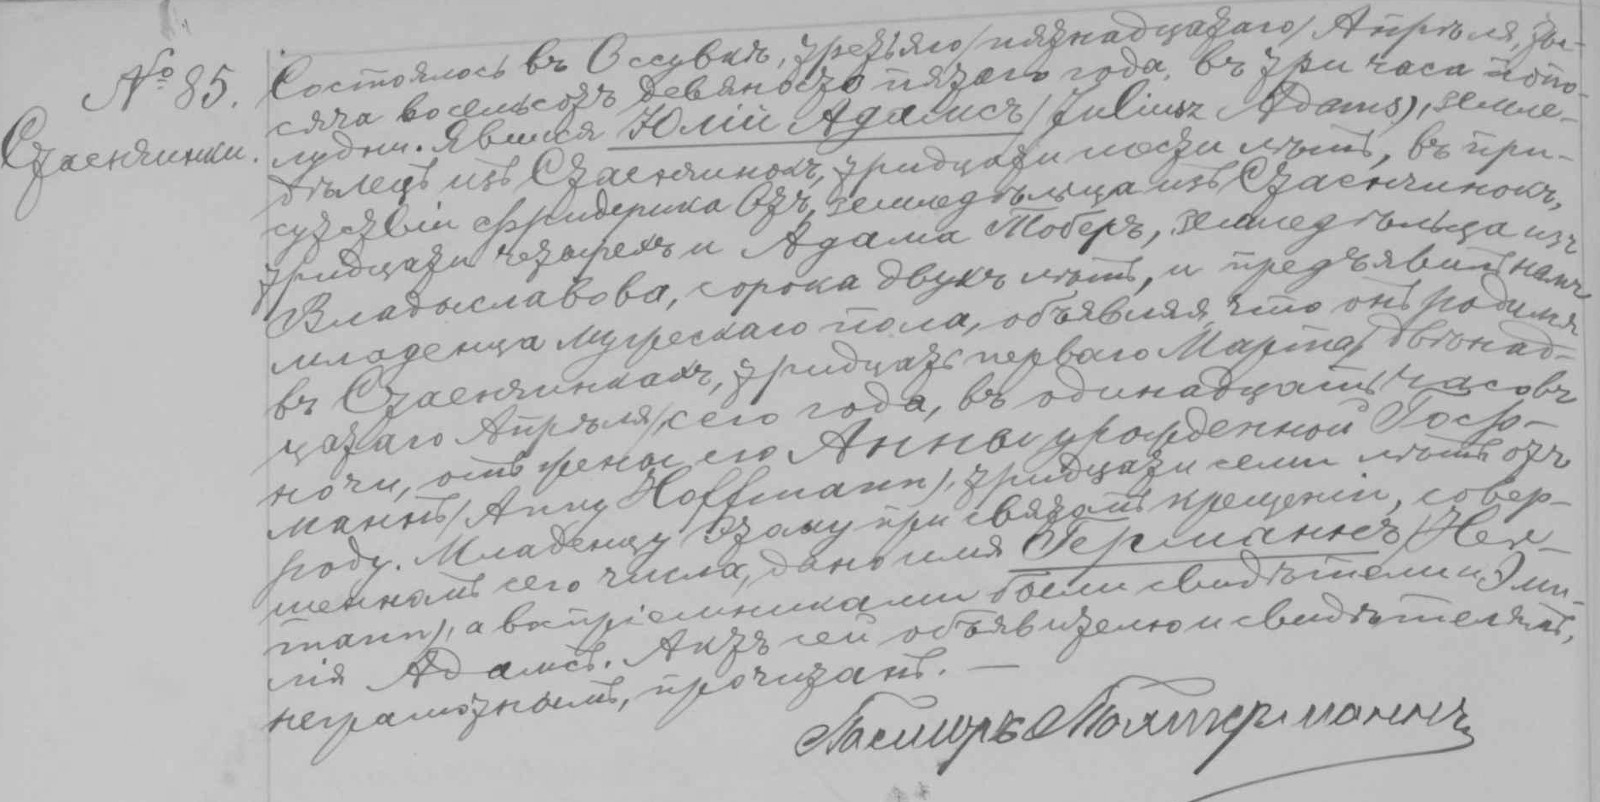 № 85.
Стаенчинки.
Состоялось въ Оссувкѣ, третьяго /пятнадцатаго/ Апрѣля, ты-
сяча восемьсотъ девяносто пятаго года, въ три часа попо-
лудни. Явился Юлій Адамсъ /Juliusz Adams/, земле-
дѣлецъ изъ Стаенчинокъ, тридцати шести лѣтъ, въ при-
сутствіи Фридерика Отъ, земледѣльца изъ Стаенчинокъ,
тридцати четырехъ и Адама Тоберъ, земледѣльца изъ
Владыславова, сорока двухъ лѣтъ, и предъявилъ намъ
младенца мужескаго пола, объявляя, что онъ родился
въ Стаенчинкахъ, тридцать перваго Марта /двѣнад-
цатаго Апрѣля/ сего года, въ одинадцать часовъ
ночи, отъ жены его Анны урожденной Гоф-
маннъ /Anny Hoffmann/, тридцати семи лѣтъ отъ
роду. Младенцу этому при святомъ крещеніи, совер-
шенномъ сего числа, дано имя Германнъ /Her-
mann/, а воспріемниками были свидѣтели и Эми-
лія Адамсъ. Актъ сей объявителю и свидѣтелямъ,
неграмотнымъ, прочитанъ. —
Пасторъ